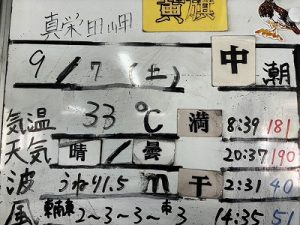 真栄田岬 黄旗
9/7(土) 中潮
気温 33℃ 満 8:39 181
天気 晴/曇 20:37 190
波 うねり1.5m 干 2:31 40
風 東南東2~3~3~東3 14:35 51